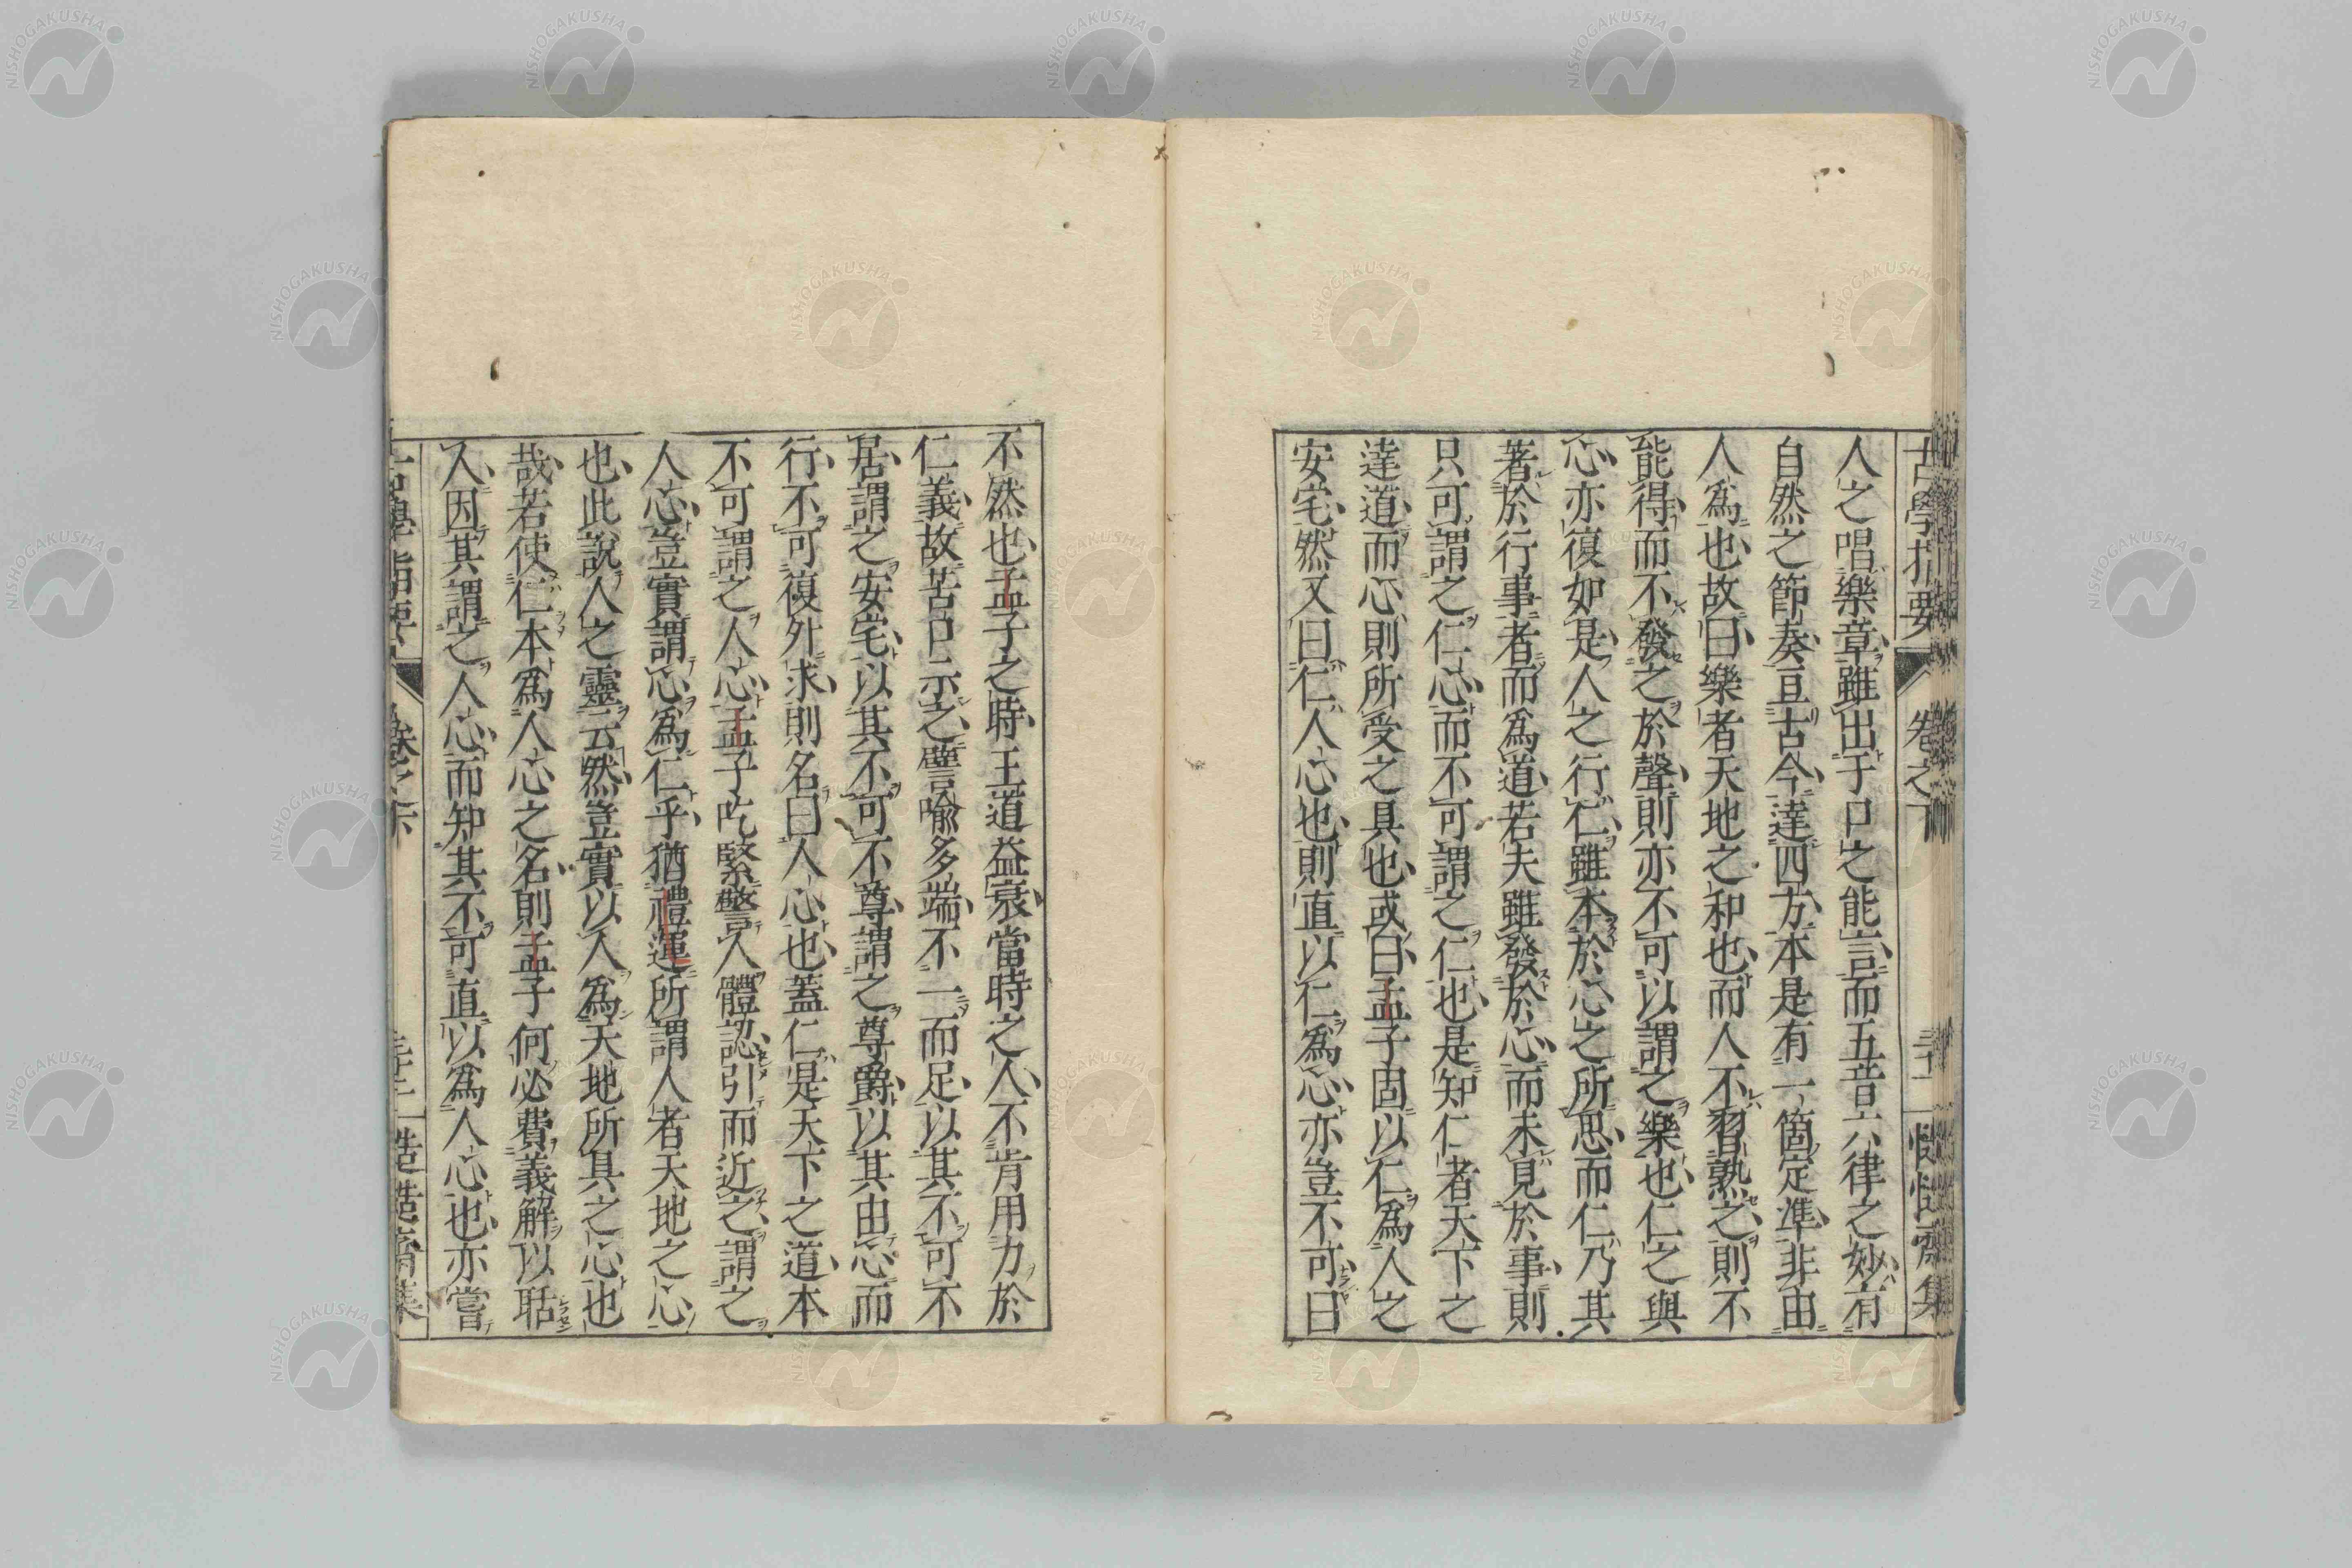 古學指要 卷之下
人之唱樂章雖出于口之能言而五音六律之妙有
自然之節奏亘古今達四方本是有一箇定準非由
人爲也故曰樂者天地之和也而人不習熟之則不
能得而不發之於聲則亦不可以謂之樂也仁之與
心亦復如是人之行仁雖本於心之所思而仁乃其
著於行事者而爲道若夫雖發於心而未見於事則
只可謂之仁心而不可謂之仁也是知仁者天下之
達道而心則所受之具也或曰孟子固以仁爲人之
安宅然又曰仁人心也則直以仁爲心亦豈不可曰
不然也孟子之時王道益衰當時之人不肯用力於
仁義故苦口示之譬喩多端不一而足以其不可不
居謂之安宅以其不可不尊謂之尊爵以其由心而
行不可復外求則名曰人心也蓋仁是天下之道本
不可謂之人心孟子吃緊警人體認引而近之謂之
人心豈實謂心爲仁乎猶禮運所謂人者天地之心
也此說人之靈云然豈實以人爲天地所具之心也
哉若使仁本爲人心之名則孟子何必費義解以聒
人因其謂之人心而知其不可直以爲人心也亦嘗
古學指要 卷之下
NISHOGAKUSHA